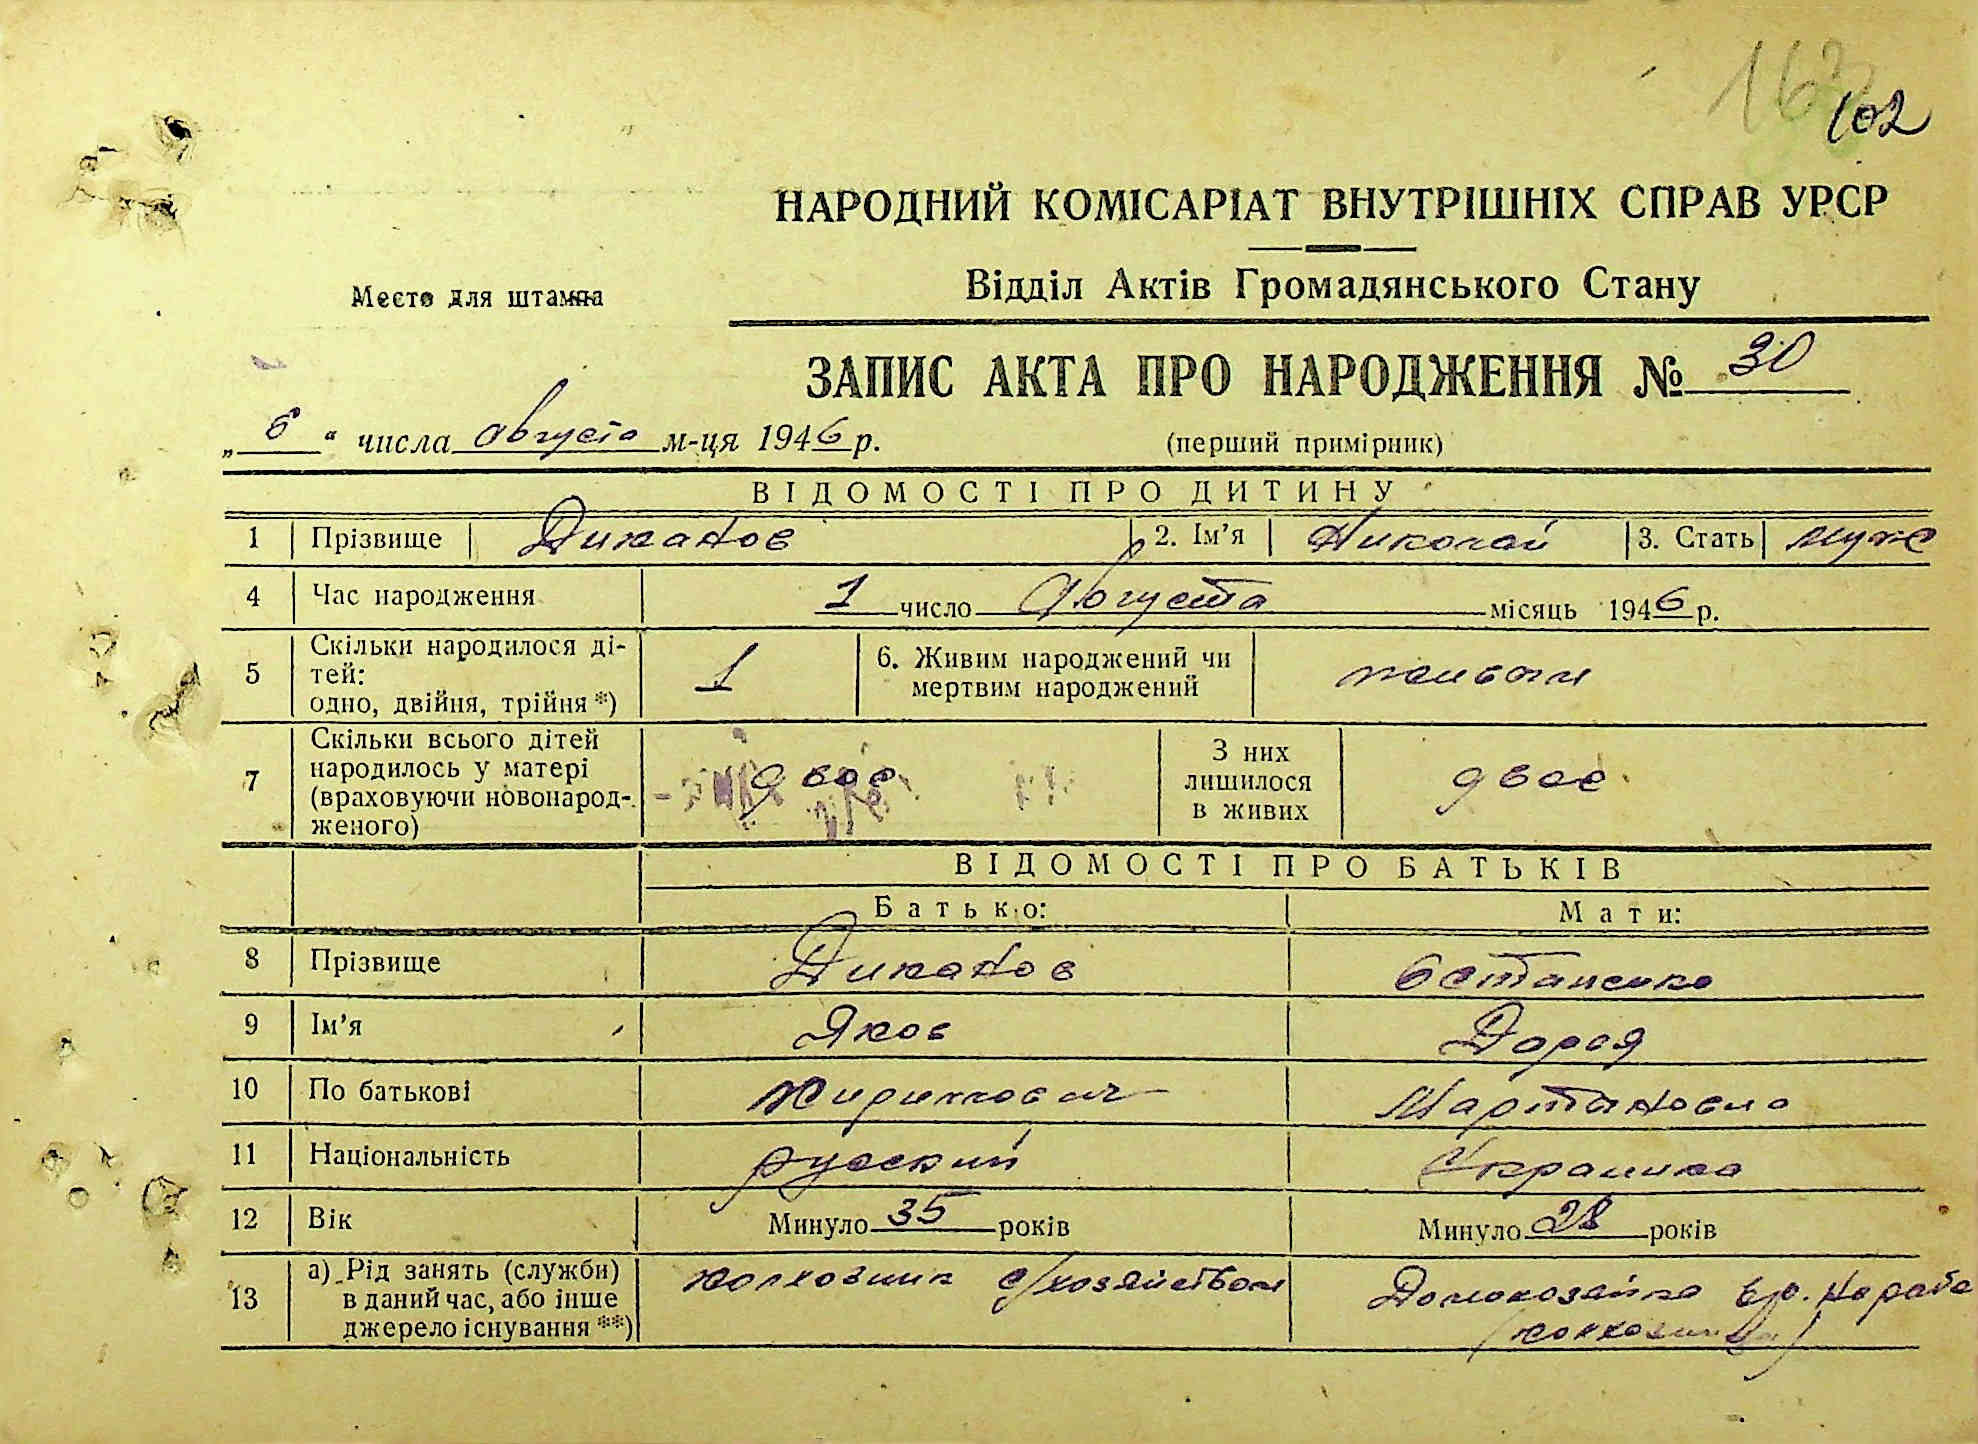 163
102
НАРОДНИЙ КОМІСАРІАТ ВНУТРІШНІХ СПРАВ УРСР
Место для штампа
Відділ Актів Громадянського Стану
ЗАПИС АКТА ПРО НАРОДЖЕННЯ № 30
„6“ числа августа м-ця 1946 р. (перший примірник)
ВІДОМОСТІ ПРО ДИТИНУ
1 Прізвище Диканов 2. Ім'я Николай 3. Стать муже
4 Час народження 1 число Августа місяць 1946 р.
5 Скільки народилося ді-
тей:
одно, двійня, трійня *) 1 6. Живим народжений чи
мертвим народжений живым
7 Скільки всього дітей
народилось у матері
(враховуючи новонарод-
женого) двое З них
лишилося
в живих двое
ВІДОМОСТІ ПРО БАТЬКІВ
Батько: Мати:
8 Прізвище Диканов Остапенко
9 Ім'я Яков Дарья
10 По батькові Кириллович Мартыновна
11 Національність русский Украинка
12 Вік Минуло 35 років Минуло 28 років
13 а) Рід занять (служби)
в даний час, або інше
джерело існування **) колхозник с/хозяйством Домохозяйка